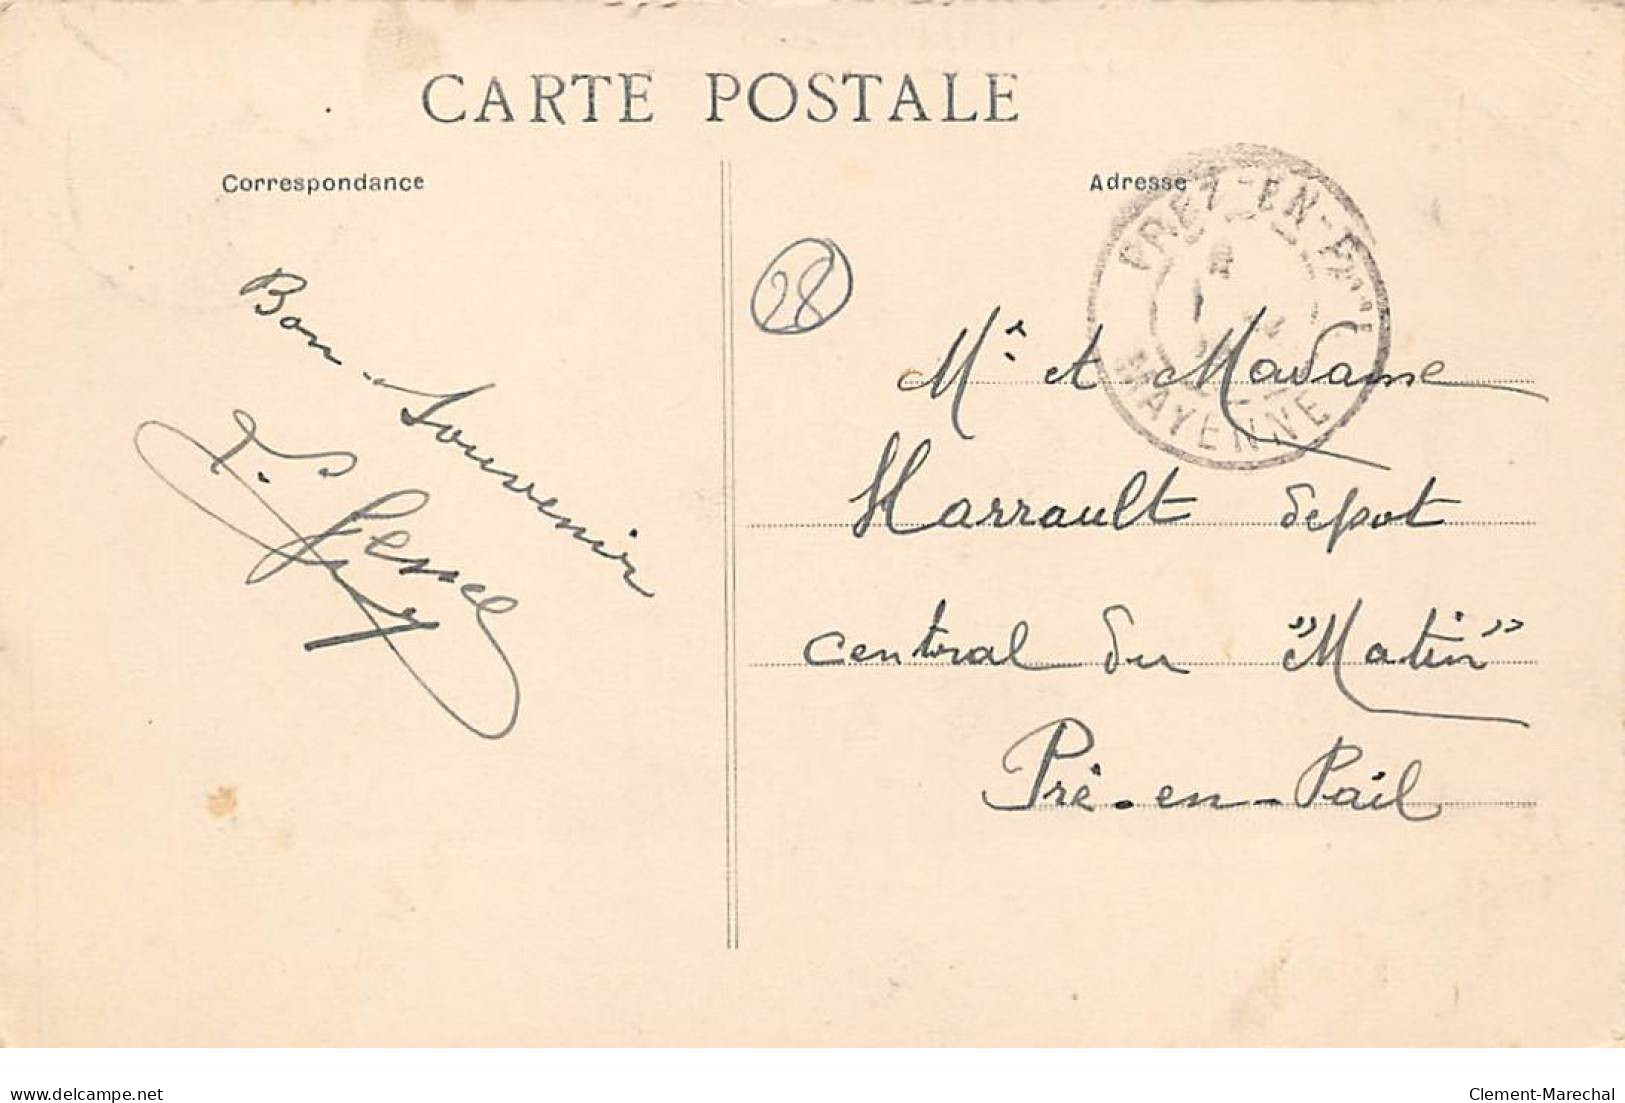 CARTE POSTALE
Correspondance
Adresse
PREZ-EN-P
MAYENNE
28
Bon Souvenir
Mr et Madame
Harrault depot
central du "Matin"
Pré-en-Pail
delcampe.net
Clement-Marechal